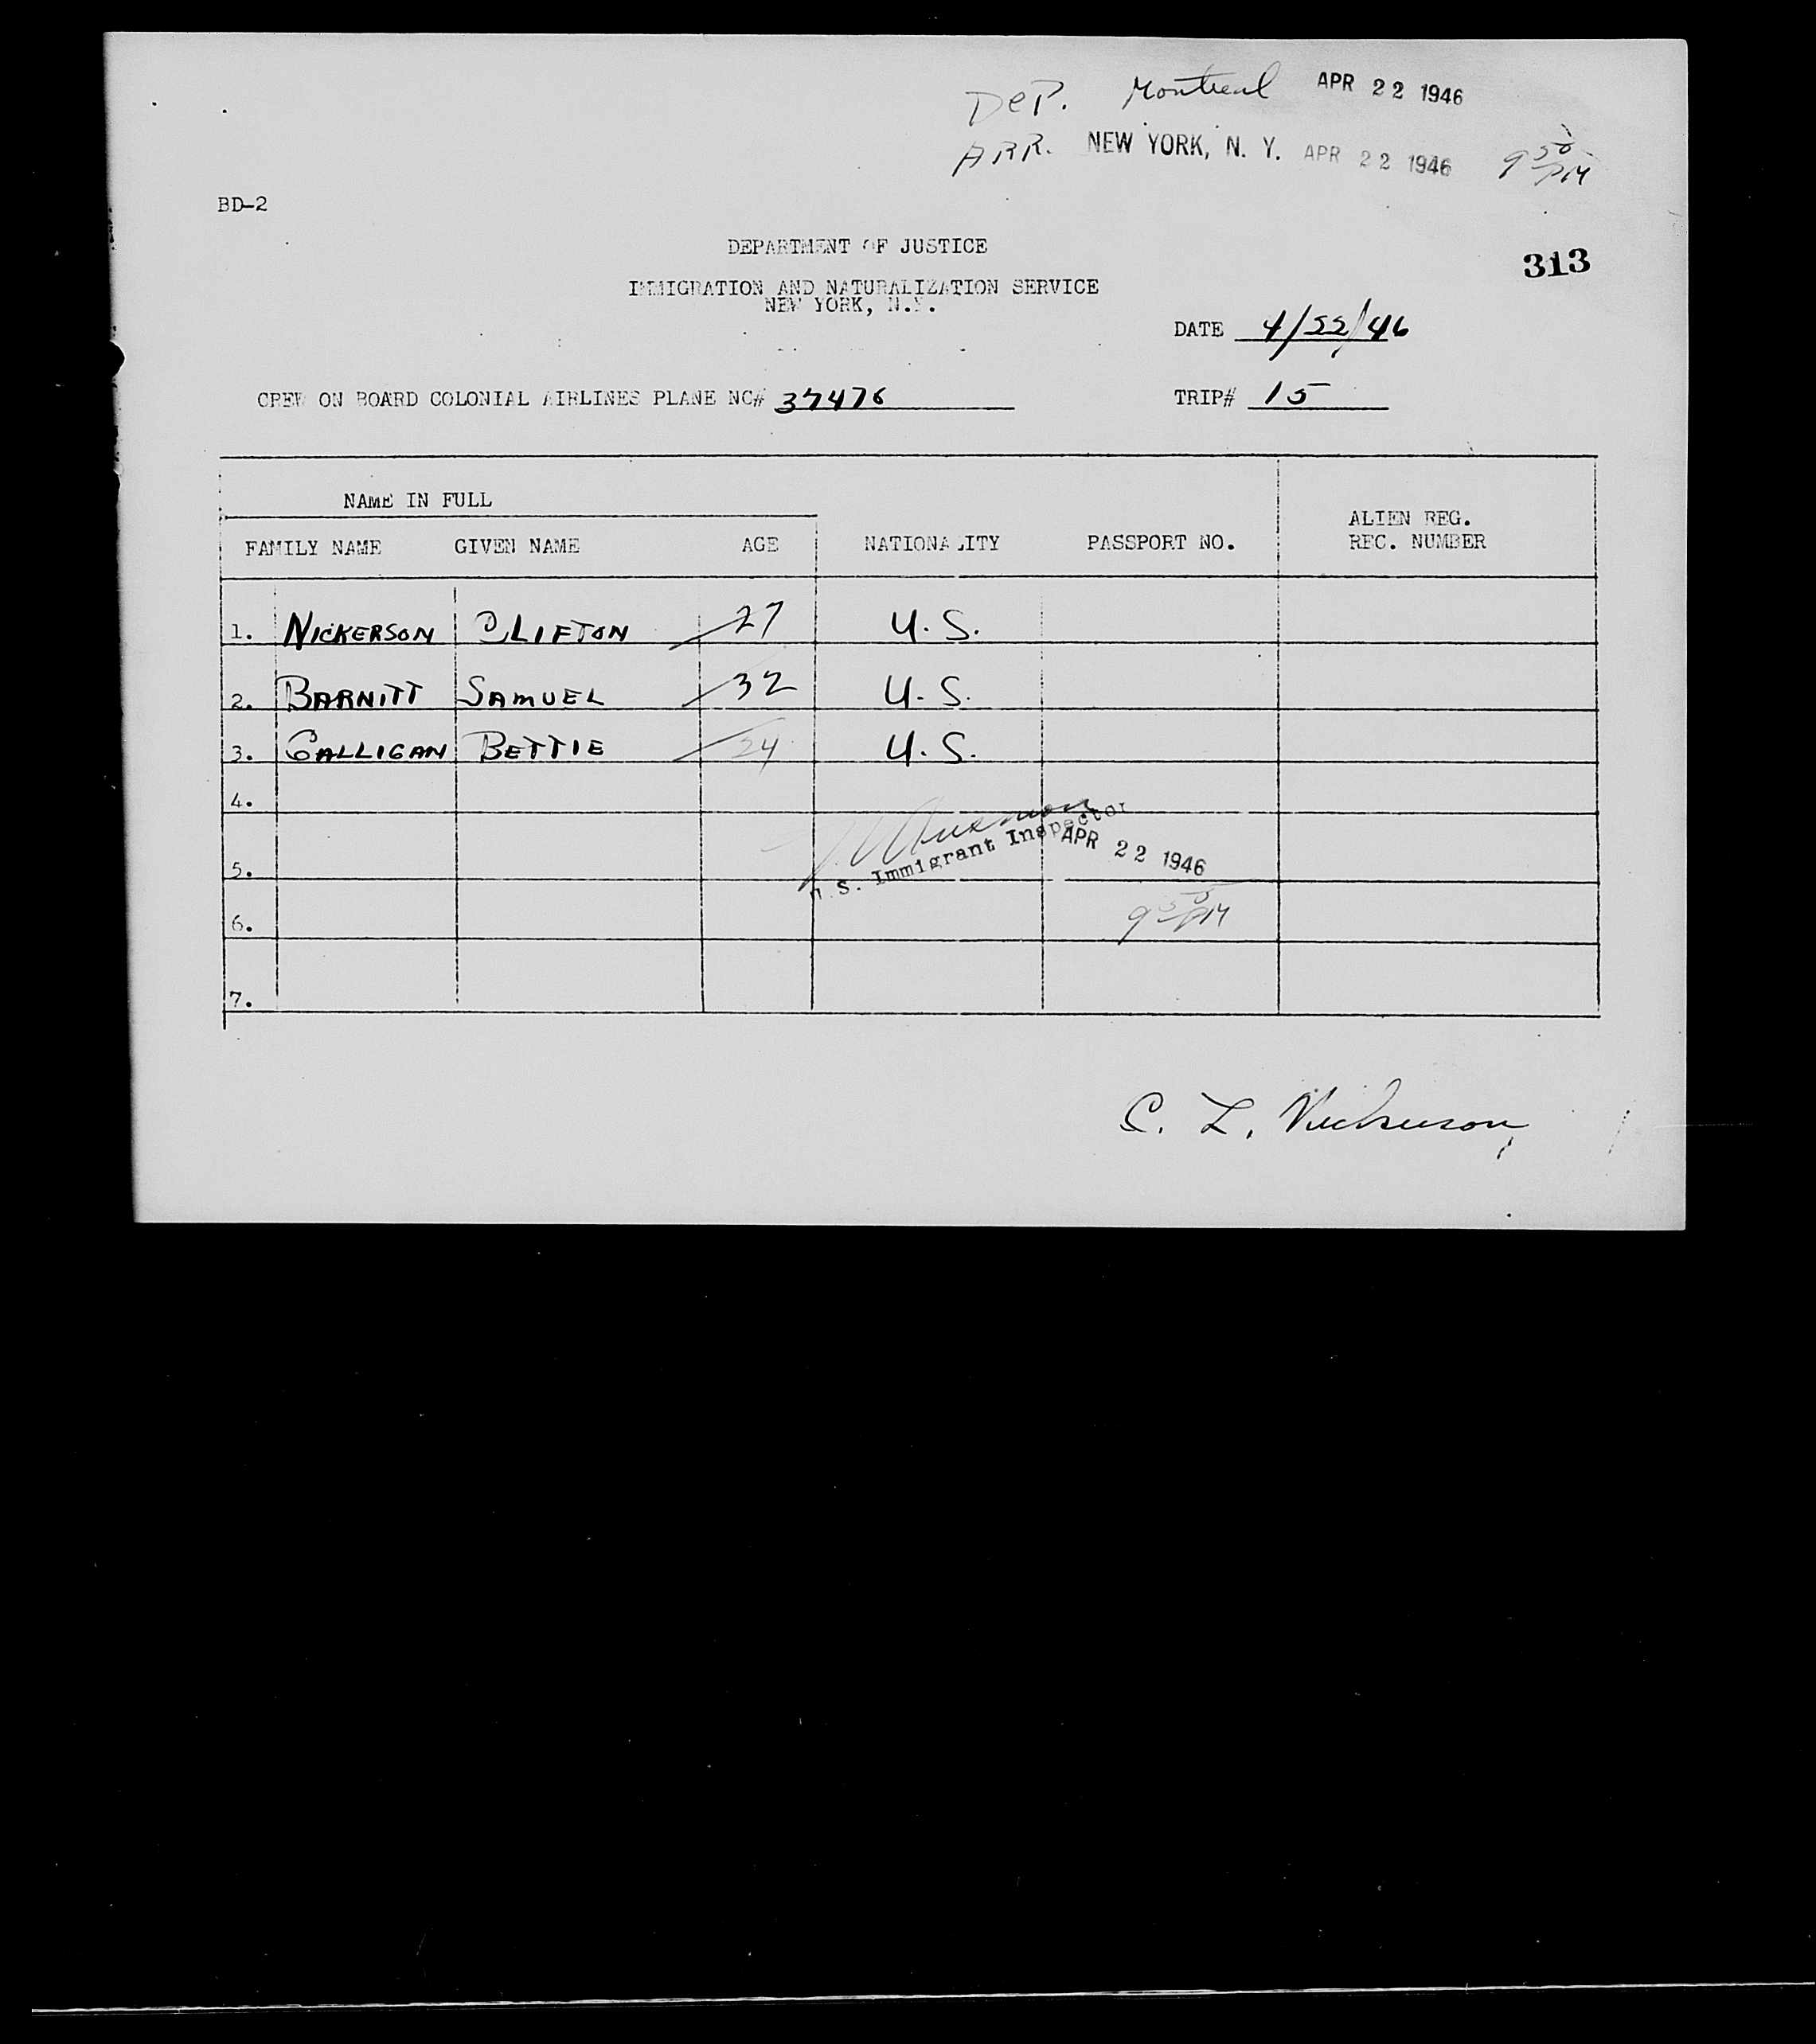 DEP. Montreal APR 22 1946
ARR. NEW YORK, N. Y. APR 22 1946 9 50 PM
BD-2
DEPARTMENT OF JUSTICE
313
IMMIGRATION AND NATURALIZATION SERVICE
NEW YORK, N.Y.
DATE 4/22/46
CREW ON BOARD COLONIAL AIRLINES PLANE NC# 37476 TRIP# 15
NAME IN FULL
FAMILY NAME GIVEN NAME AGE NATIONALITY PASSPORT NO. ALIEN REG. REC. NUMBER
1. NICKERSON CLIFTON 27 U.S.
2. BARNITT SAMUEL 32 U.S.
3. GALLIGAN BETTIE 24 U.S.
4.
U.S. Immigrant Inspector APR 22 1946
5.
6. 9 50 PM
7.
C. L. Nickerson